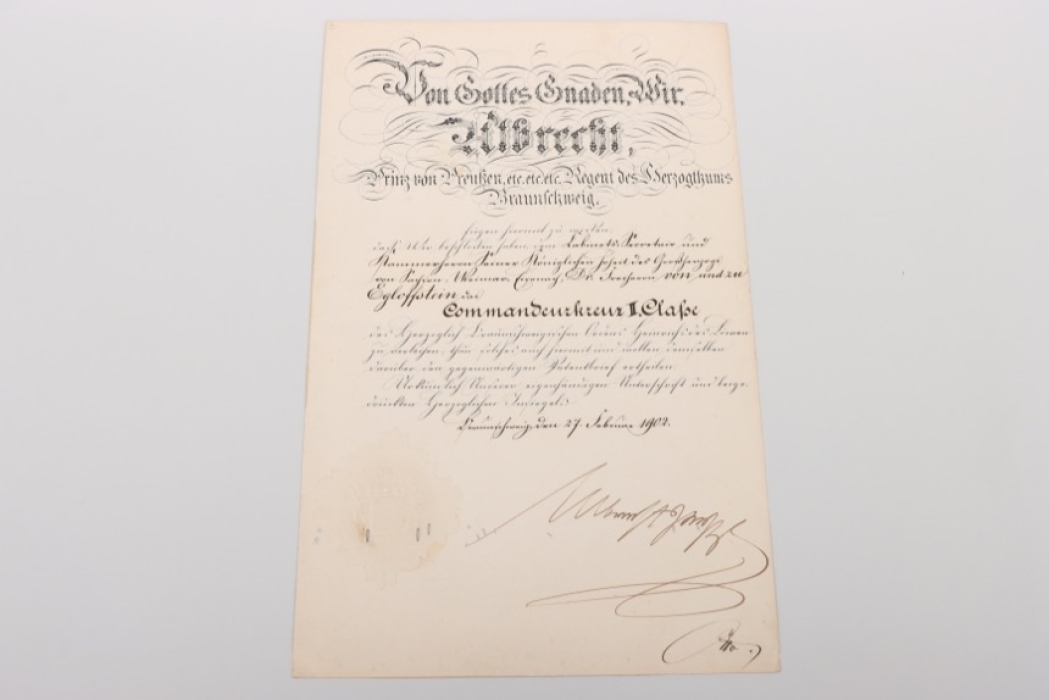 Von Gottes Gnaden, Wir,
Albrecht,
Prinz von Preußen, etc. etc. etc. Regent des Herzogthums
Braunschweig.
fügen hiermit zu wissen,
daß Wir beschlossen haben, dem Kabinets-Secretair und
Kammerherrn Seiner Königlichen Hoheit des Großherzogs
von Sachsen-Weimar-Eisenach, Dr. Freiherrn von und zu
Egloffstein das
Commandeurkreuz II. Classe
des Herzoglich Braunschweigischen Ordens Heinrichs des Löwen
zu verleihen, thun solches auch hiermit und wollen demselben
darüber den gegenwärtigen Patentbrief ertheilen.
Urkundlich Unserer eigenhändigen Unterschrift und beige-
drückten Herzoglichen Insiegels.
Braunschweig, den 27. Februar 1902.
Albrecht